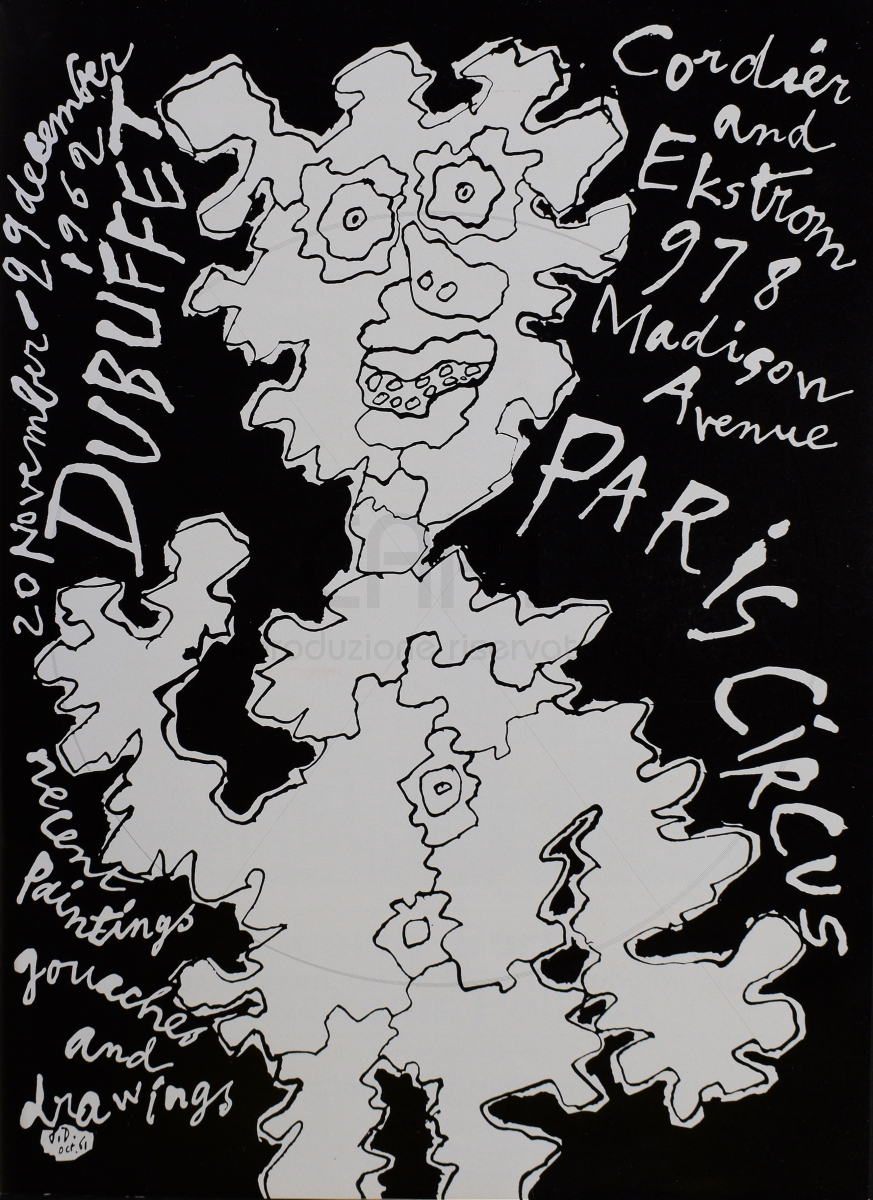 20 November – 29 december
1962
DUBUFFET
Cordier
and
Ekstrom
978
Madison
Avenue
PARiS CiRCUS
recent
Paintings
gouaches
and
drawings
J.D.
oct. 61
riproduzione riservata